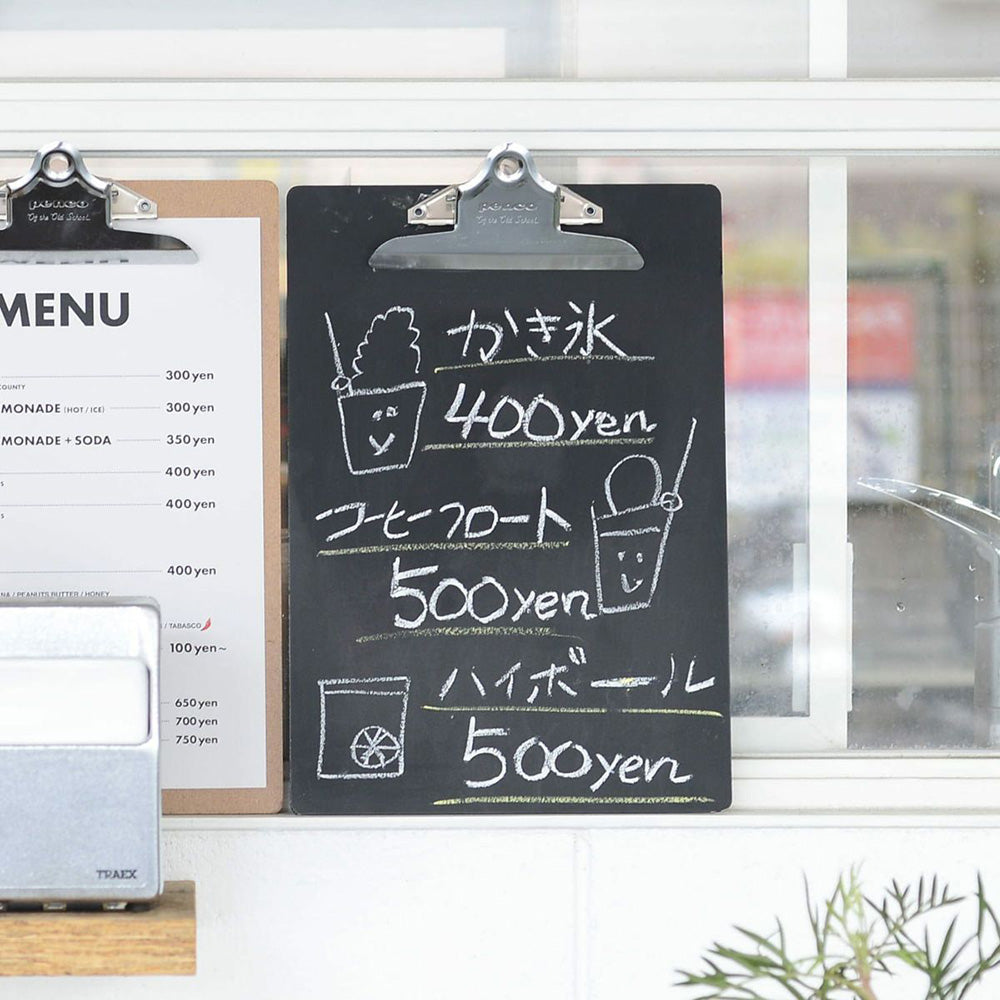 penco
Of the Old School.
MENU
300yen
COUNTY
MONADE (HOT / ICE) 300yen
MONADE + SODA 350yen
400yen
400yen
400yen
NA / PEANUTS BUTTER / HONEY
/ TABASCO
100yen~
650yen
700yen
750yen
TRAEX
penco
Of the Old School.
かき氷
400yen
コーヒーフロート
500yen
ハイボール
500yen